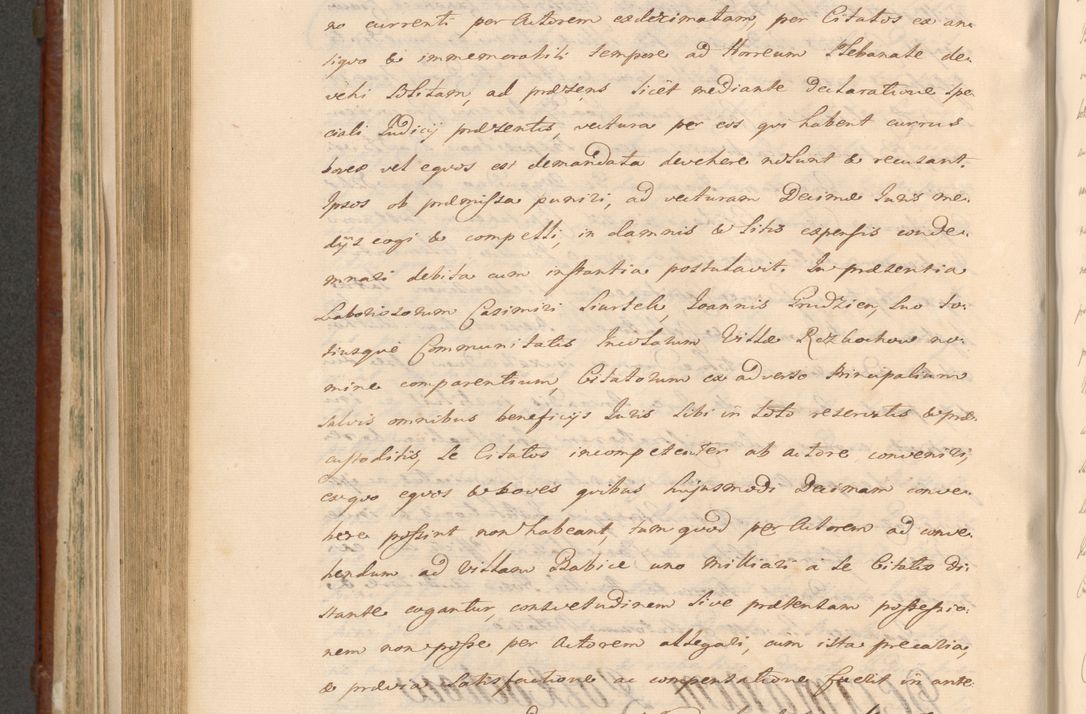 no currenti per Actorem exdecimatam, per Citatos ex an-
tiquo & immemorabili tempore ad Horreum Plebanale de-
vehi solitam, ad præsens licet mediante declaratione spe-
ciali Judicij præsentis, vectura per eos qui habent currus
boves vel equos est demandata devehere nolunt & recusant.
Ipsos ob præmissa puniri, ad vecturam Decimæ Juris me-
dijs cogi & compelli, in damnis & litis expensis conde-
mnari debita cum instantia postulavit. In præsentia
Laboriosorum Casimiri Joannis Grudzien, suo to-
tiusque Communitatis Incolarum Villæ no-
mine comparentium, Citatorum ex adverso Principalium
salvis omnibus beneficijs Juris sibi in toto reservatis & præ-
custoditis, se Citatos incompetenter ab actore conveniri,
ex quo equos & boves quibus hujusmodi Decimam conve-
here possint non habeant, tum quod per Actorem ad conve-
hendum ad Villam Babice uno milliari a se Citatis di-
stante cogantur, consvetudinem sive prætensam possessio-
nem non posse per Actorem allegari, cum ista precaria,
& prævia satisfactione ac compensatione fuerit in ante